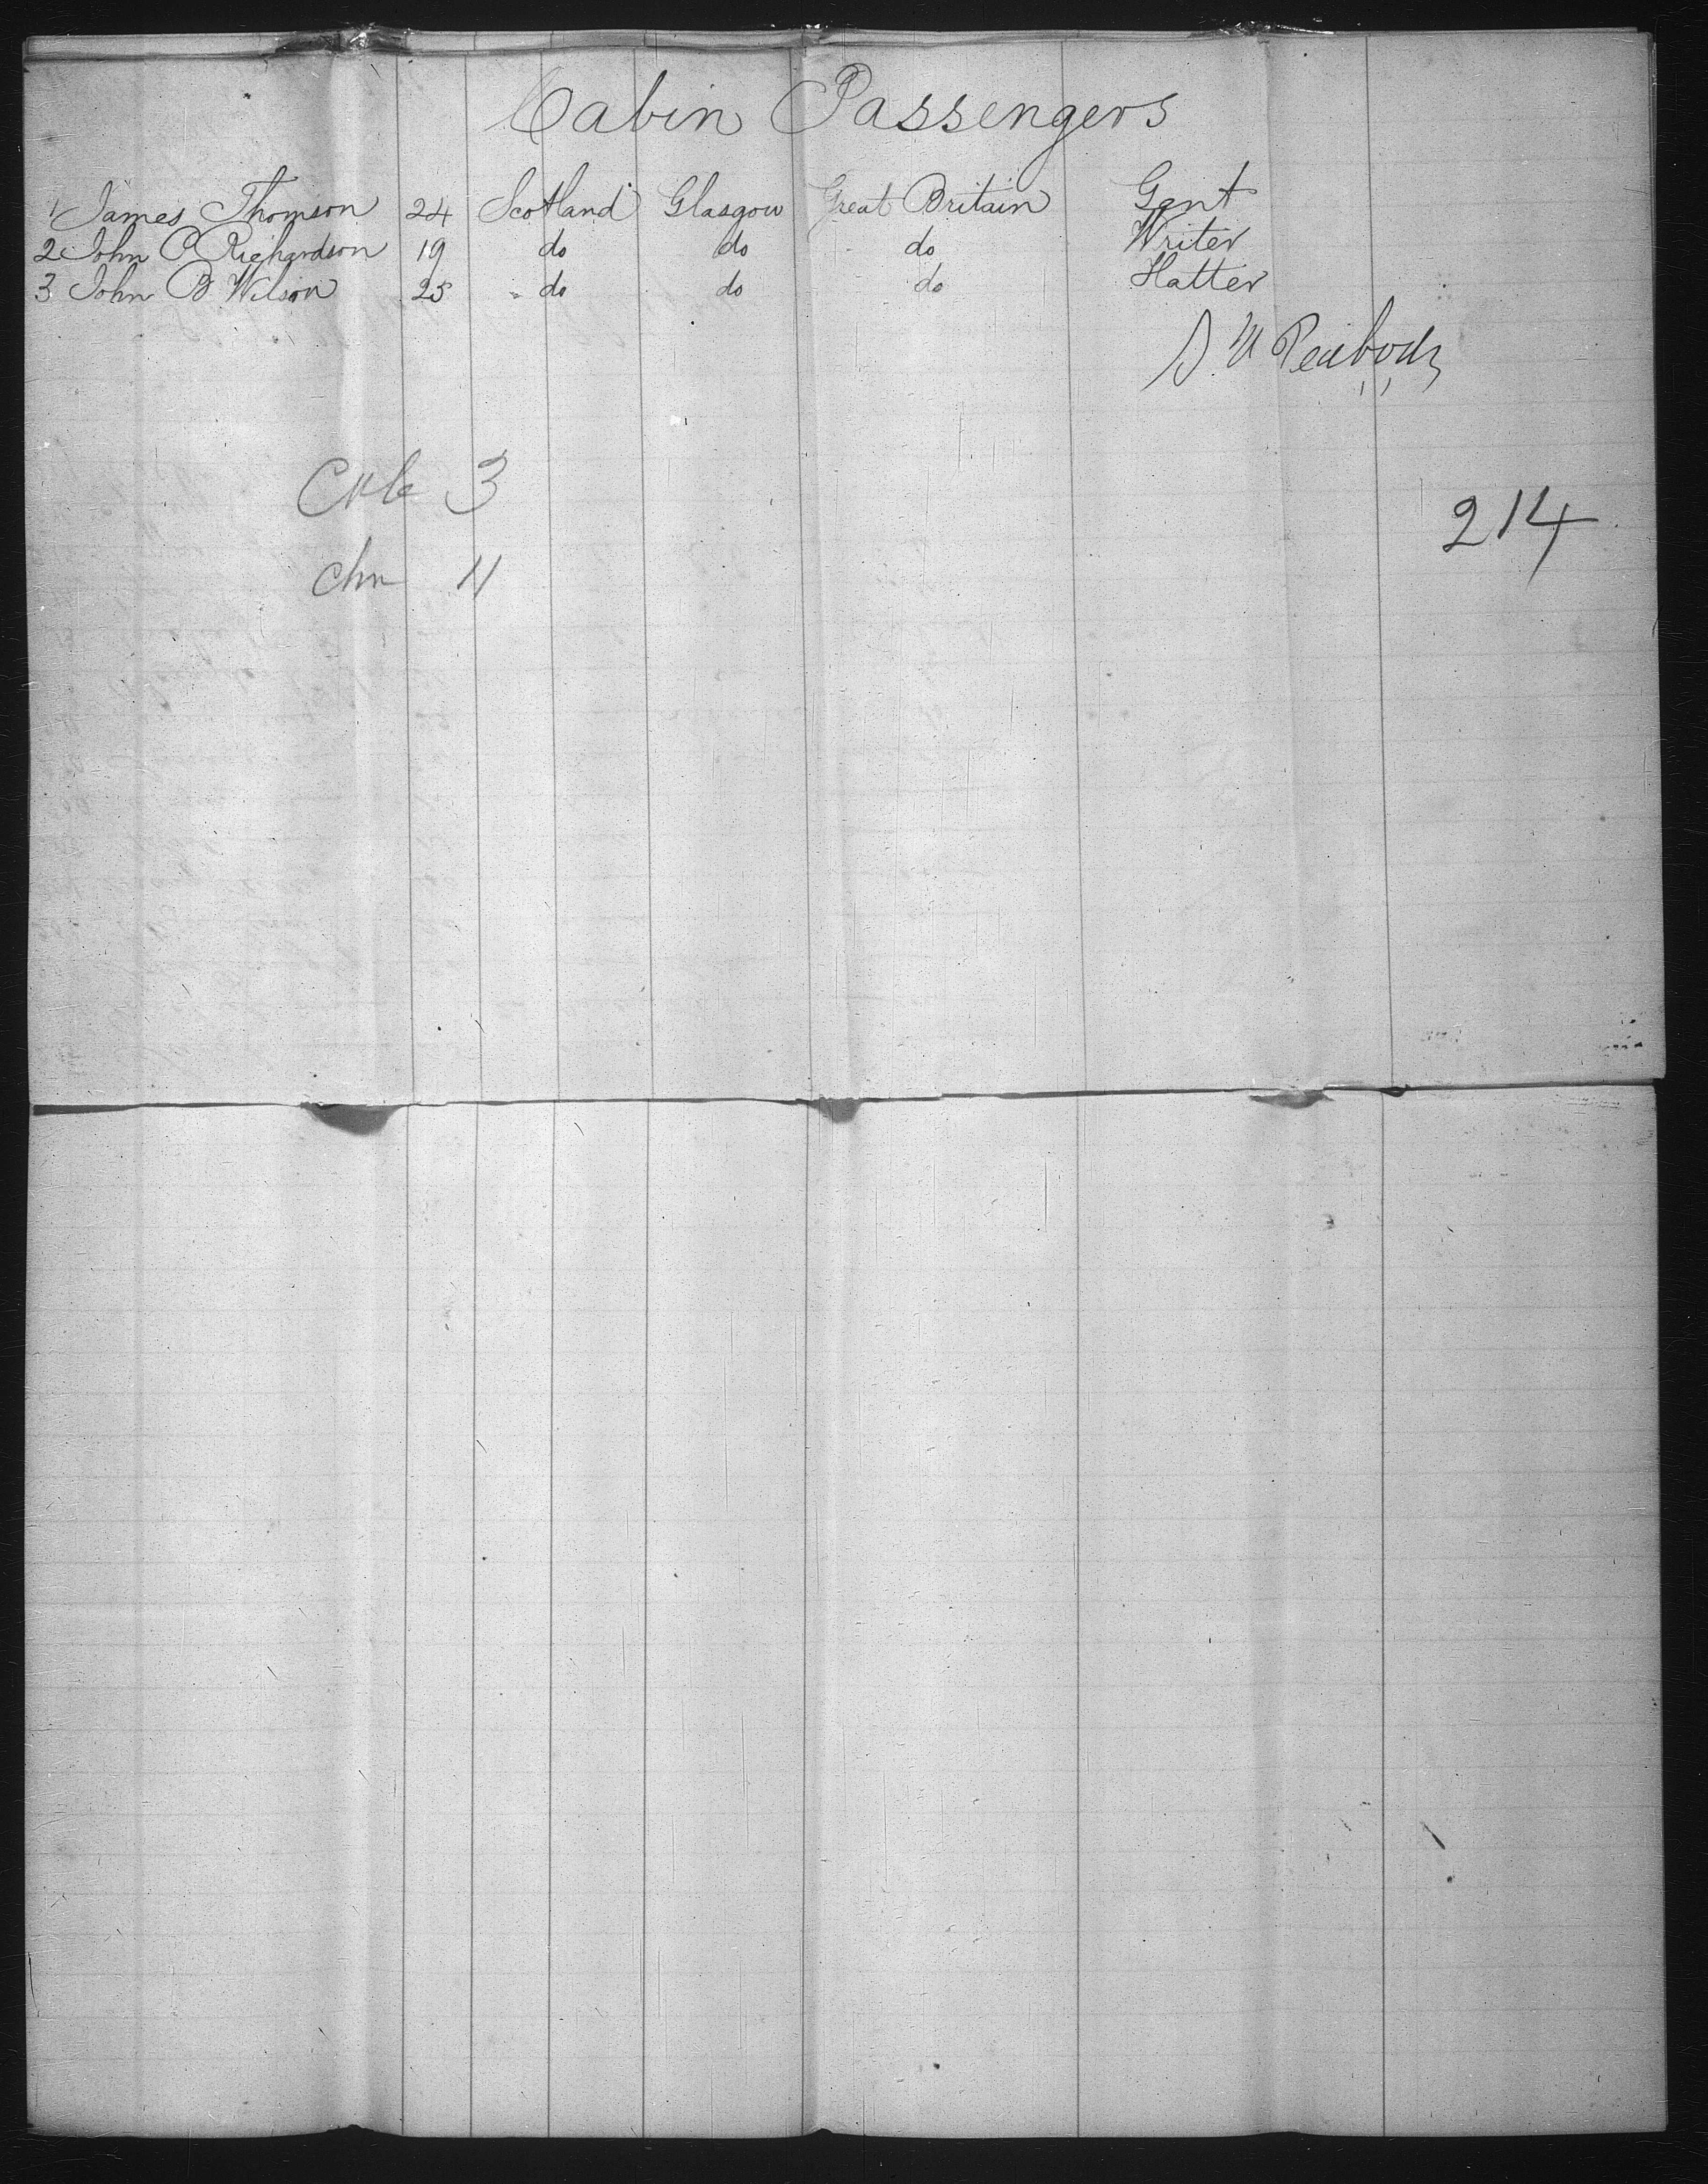 Cabin Passengers
1 James Thomson 24 Scotland Glasgow Great Britain Gent
2 John C Richardson 19 do do do Writer
3 John B Wilson 25 do do do Hatter
Peabody
3
214
11